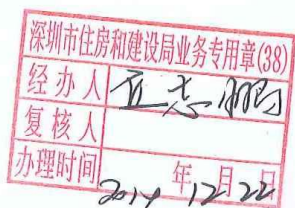 深圳市住房和建设局业务专用章(38)
经办人 丘志鹏
复核人
办理时间 2014 年 12 月 22 日